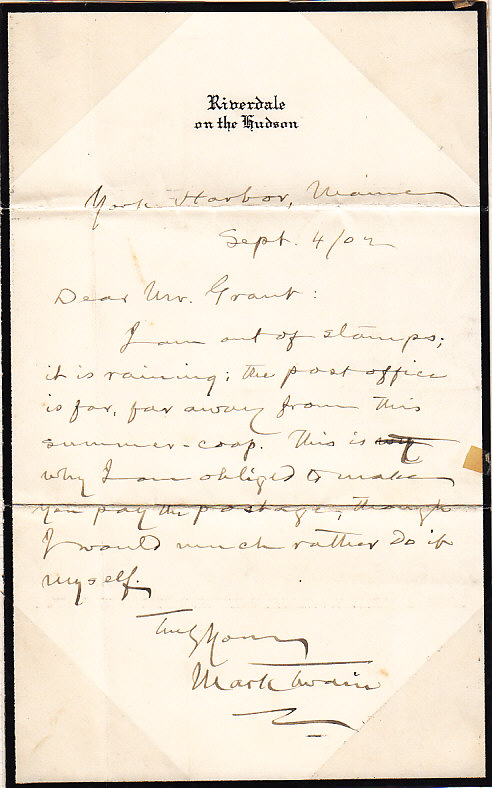 Riverdale
on the Hudson
York Harbor, Maine
Sept. 4/02
Dear Mr. Grant:
I am out of stamps;
it is raining; the post office
is far, far away from this
summer-coop. This is
why I am obliged to make
you pay the postage, though
I would much rather do it
myself.
Truly Yours
Mark Twain